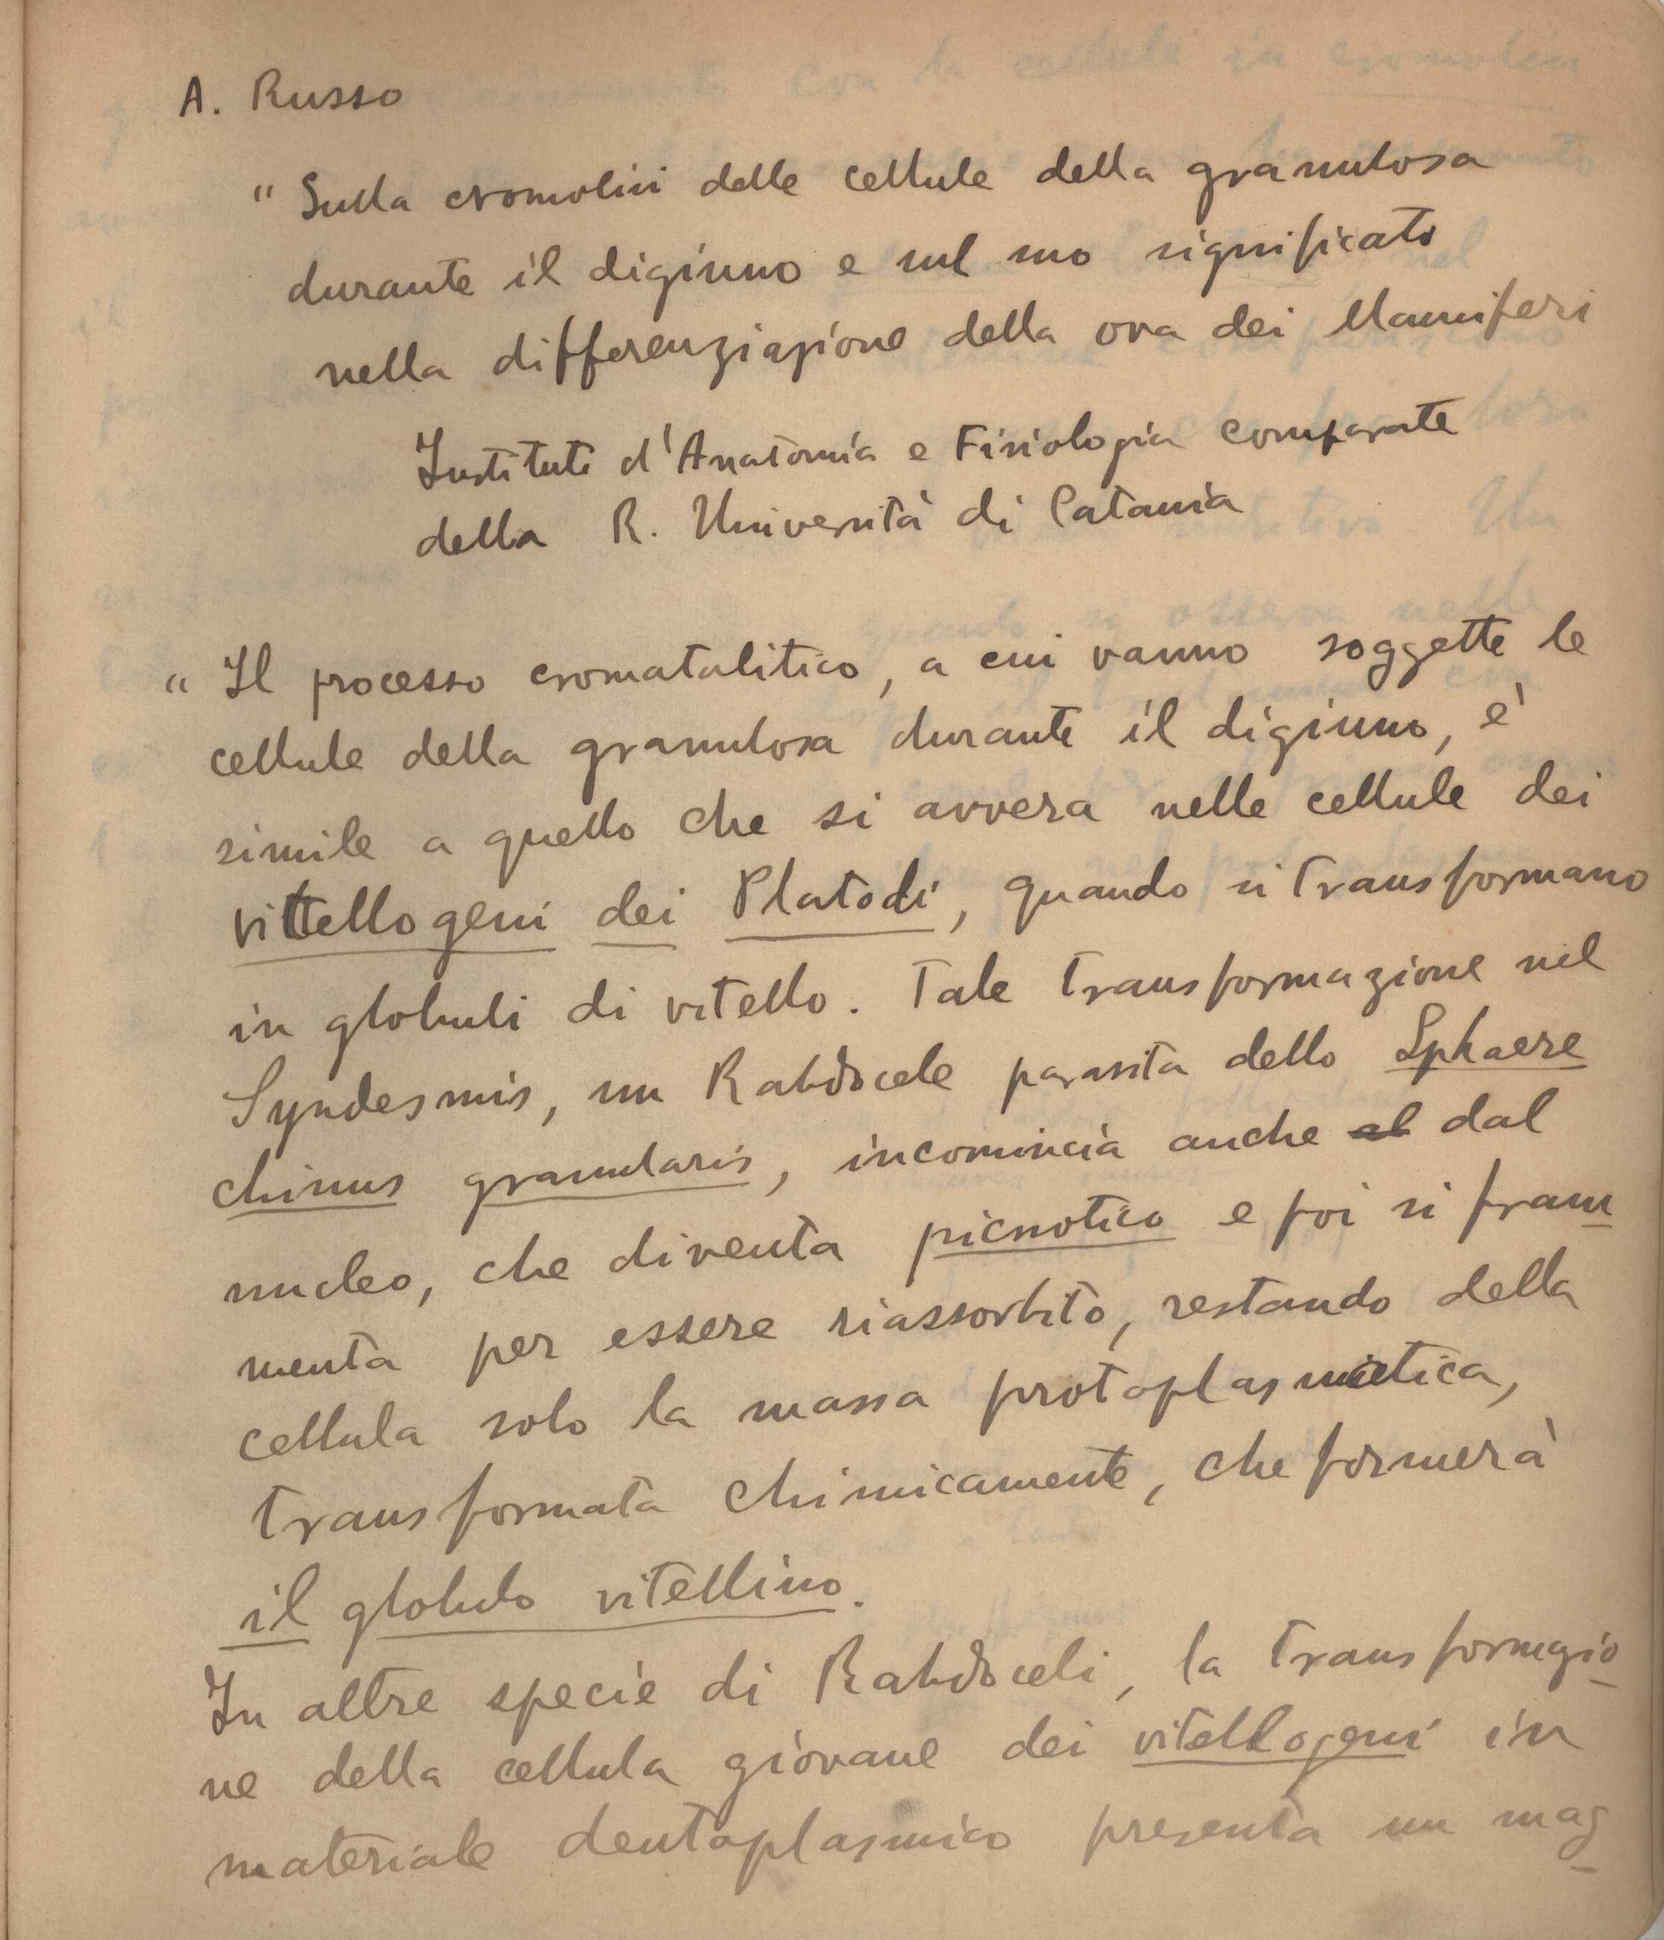 A. Russo
" Sulla cromolisi delle cellule della granulosa
durante il digiuno e sul suo significato
nella differenziazione della ova dei Mammiferi
Institute d'Anatomia e Fisiologia comparate
della R. Università di Catania
" Il processo cromatolitico, a cui vanno soggette le
cellule della granulosa durante il digiuno, è
simile a quello che si avvera nelle cellule dei
vitellogeni dei Platodi, quando si transformano
in globuli di vitello. Tale transformazione nel
Syndesmis, un Rabdocele parasita dello Sphaere
chinus granularis, incomincia anche al dal
nucleo, che diventa picnotico e poi si fram
menta per essere riassorbito, restando della
cellula solo la massa protoplasmatica,
transformata chimicamente, che formerà
il globulo vitellino.
In altre specie di Rabdoceli, la transformazio
ne della cellula giovane dei vitellogeni in
materiale deutoplasmico presenta un mag